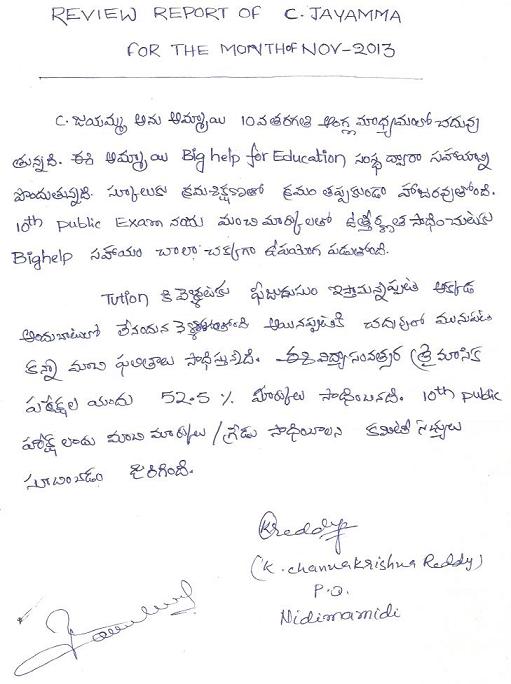 REVIEW REPORT OF C. JAYAMMA
FOR THE MONTH of NOV-2013
C. జయమ్మ అను అమ్మాయి 10వ తరగతి ఆంగ్ల మాధ్యమంలో చదువు
తున్నది. ఈ అమ్మాయి Big help for Education సంస్థ ద్వారా సహాయాన్ని
పొందుతున్నది. స్కూలుకు క్రమశిక్షణతో క్రమం తప్పకుండా హాజరవుతోంది.
10th public Exam నందు మంచి మార్కులతో ఉత్తీర్ణత సాధించుటకు
Bighelp సహాయం చాలా చక్కగా ఉపయోగ పడుతోంది.
Tution కి వెళ్ళుటకు ఫీజుదుసుం ఇస్తామన్నప్పటికి అక్కడ
అందుబాటులో లేనందున అయినప్పటికి చదువులో మునుపటి
కన్నా మంచి ఫలితాలు సాధిస్తున్నది. ఈ విద్యా సంవత్సర త్రైమాసిక
పరీక్షల యందు 52.5 % మార్కులు సాధించినది. 10th public
పరీక్ష లందు మంచి మార్కులు / గ్రేడు సాధించాలని కమిటీ సభ్యులు
సూచించడం జరిగింది.
KReddy
(K. channakrishna Reddy)
P.O.
Nidimamidi